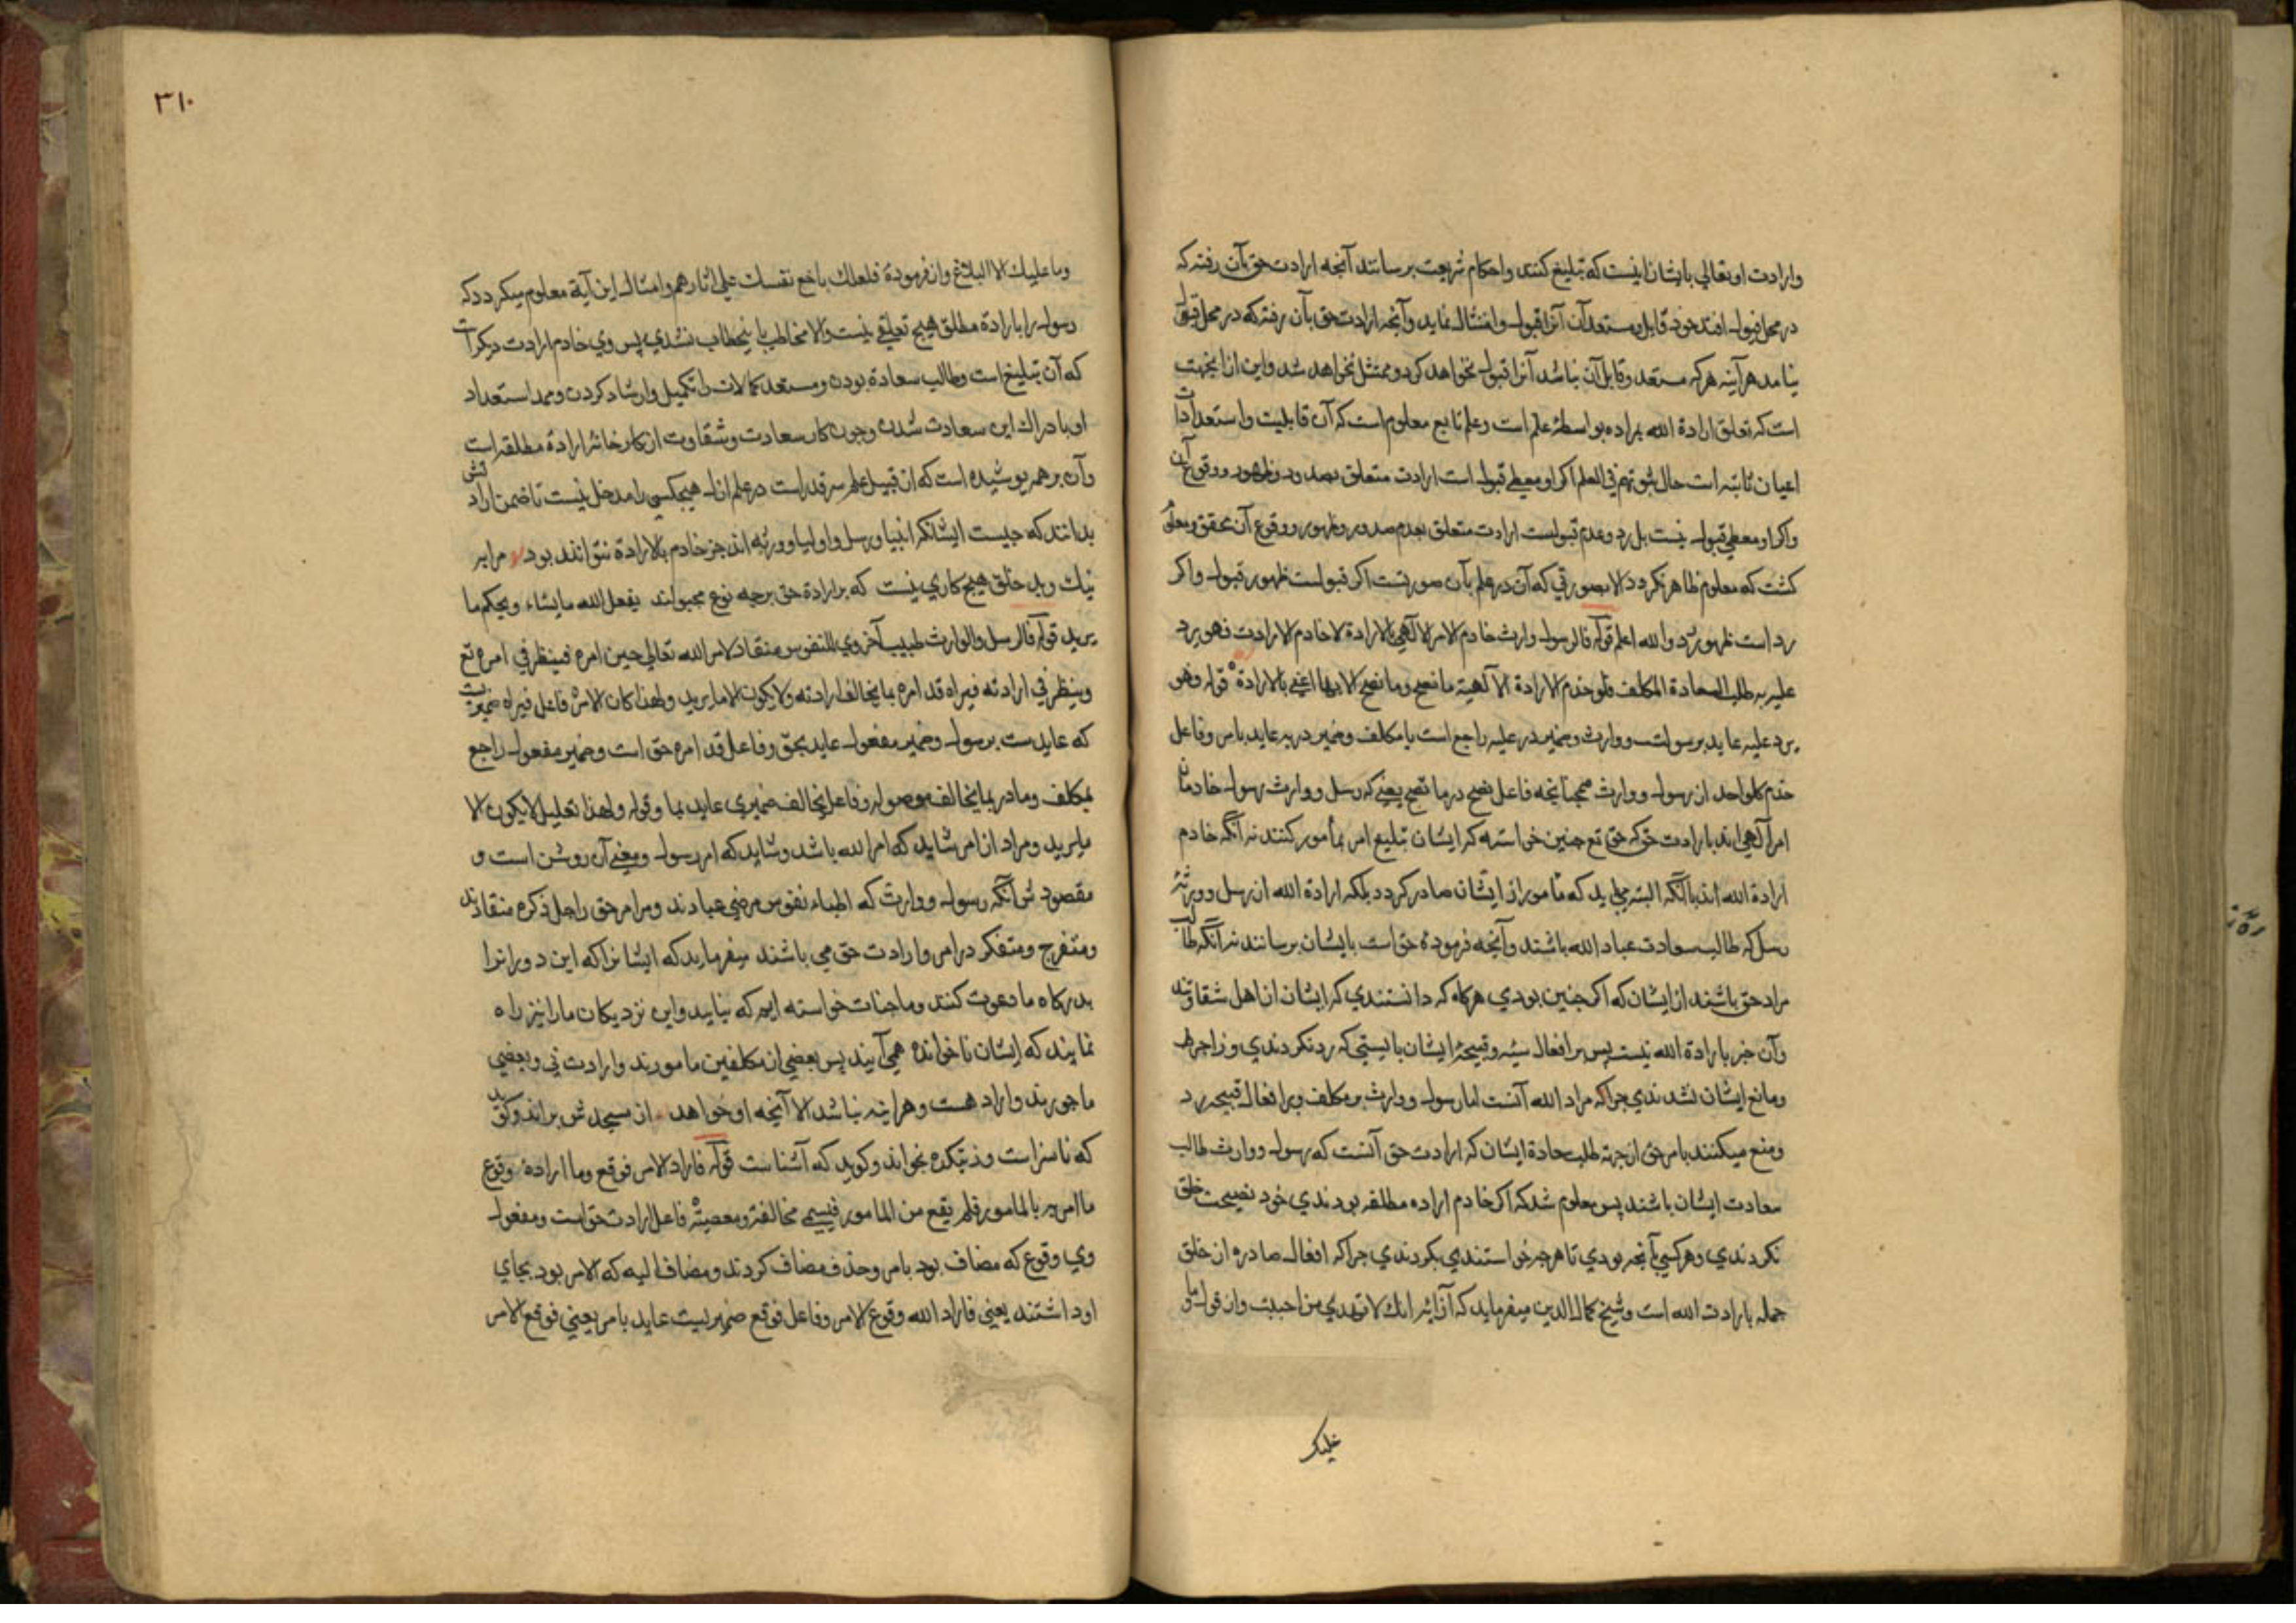 وارادت او تعالی بایشان اینست که تبلیغ کنند و احکام شریعت برسانند آنچه ارادت حق بآن رفته که
در محل قبول افتد خود قابل و مستعد آن آنرا قبول و امتثال نماید و آنچه ارادت حق بآن رفته که در محل قبول
نیامد هر آینه هرکه مستعد و قابل آن نباشد آنرا قبول نخواهد کرد و ممتثل نخواهد شد و این ازانجهت
است که تعلق ارادة الله بمراده بواسطۀ علم است و علم تابع معلوم است که آن قابلیت و استعدادات
اعیان ثابته است حال ثبوتهم فی العلم اکر او معطی قبول است ارادت متعلق بصدور و ظهور و وقوع آن
واکر او معطی قبول نیست بل رد و عدم قبولست ارادت متعلق بعدم صدور و ظهور و وقوع آن محقق و معلوم
کشت که معلوم ظاهر نکردد الا بصورتی که آن در علم بآن صورتست اکر قبولست ظهور قبول و اکر
رد است ظهور رد والله اعلم قوله فالرسول والوارث خادم الامر الالهی بالارادة لا خادم الارادت فهو یرد
علیه به طلبا لسعادة المکلف فلو خدم الارادة الالهیة ما نصح وما نصح الا بها اعنی بالارادة قوله وهو
یرد علیه عاید برسولست و وارث و ضمیر در علیه راجع است با مکلف و ضمیر در به عاید بامر و فاعل
خدم کل واحد از رسول و وارث همچنانچه فاعل نصح در ما نصح یعنی که رسل و وارث رسول خادمان
امر الهی اند بارادت حق که حق تع چنین خواسته که ایشان تبلیغ امر بمأمور کنند نه آنکه خادم
ارادة الله اند با آنکه البته می باید که مأمور از ایشان صادر کردد بلکه ارادة الله از رسل و ورثۀ
رسل که طالب سعادت عباد الله باشند و آنچه فرمودۀ حق است بایشان برسانند نه آنکه طالب
مراد حق باشند از ایشان که اکر چنین بودی هرکاه که دانستندی که ایشان از اهل شقاوتند
وآن جز بارادة الله نیست پس بر افعال سیئه و قبیحۀ ایشان بایستی که رد نکردندی و زاجر
ومانع ایشان نشدندی چراکه مراد الله آنست اما رسول و وارث بر مکلف و بر افعال قبیحه رد
ومنع میکنند بامر حق از جهة طلب سعادة ایشان که ارادت حق آنست که رسول و وارث طالب
سعادت ایشان باشند پس معلوم شد که اکر خادم اراده مطلقه بودندی خود نصیحت خلق
نکردندی و هرکسی بآنچه بودی تا هرچه خواستندی بکردندی چراکه افعال صادره از خلق
جمله بارادت الله است و شیخ کمال الدین میفرماید که از آیۀ انک لا تهدی من احببت و از قول
علیک
۳۱۰
وما علیک الا البلاغ و از فرمودۀ فلعلک باخع نفسک علی آثارهم و امثال این آیة معلوم میکردد که
رسول را باراده مطلق هیچ تعلقی نیست والا مخاطب باینخطاب نشدی پس وی خادم ارادت دیکر است
که آن تبلیغ است و طالب سعادة بودن و مستعد کمالات را تکمیل و ارشاد کردن و ممد استعداد
او بادراك این سعادت شدن و چون کار سعادت و شقاوت از کارخانۀ ارادۀ مطلقه است
وآن بر همه پوشیده است که از قبیل علم سر قدر است در علم ازل هیچکس را مدخل نیست تا ضمن ارادتش
بدانند که چیست ایشانکه انبیا و رسل و اولیا و ورثه اند جز خادم بالارادة نتوانند بود مرا بر
نیك و بد خلق هیچ کاری نیست که بر ارادة حق بر چه نوع مجبولند یفعل الله ما یشاء ویحکم ما
یرید قوله فالرسل والوارث طبیب اخروی للنفوس منقاد لامر الله تعالی حین امره فینظر فی امره تع
وینظر فی ارادته فیراه قد امره بما یخالف ارادته ولا یکون الا ما یرید ولهذا کان الامر فاعل فیراه ضمیریست
که عایدست برسول و ضمیر مفعول عاید بحق و فاعل قد امره حق است و ضمیر مفعول راجع
بمکلف و ما در بما یخالف موصوله و فاعل یخالف ضمیری عاید بما و قوله ولهذا تعلیل لا یکون الا
ما یرید و مراد از امر شاید که امر الله باشد و شاید که امر رسول و معنی آن روشن است و
مقصودش آنکه رسول و وارث که اطباء نفوس مرضی عبادند و مر امر حق را جل ذکره منقادند
ومتفرج و متفکر در امر و ارادت حق می باشند میفرماید که ایشانرا که این دورانرا
بدرکاه ما دعوت کنند و ما چنان خواسته ایم که نیایند و این نزدیکان ما را نیز راه
نمایند که ایشان ناخوانده همی آیند پس بعضی از مکلفین مامورند و ارادت نی و بعضی
ماجورند و اراد هست و هر اینه نباشد الا آنچه او خواهد از مسجدش براند و کوید
که ناسزاست وز بتکده بخواند و کوید که آشناست قوله فاراد الامر فوقع وما اراده وقوع
ما امر به بالمامور فلم یقع من المامور فیسمی مخالفة ومعصیة فاعل اراد حق است ومفعول
وی وقوع که مضاف بود بامر و حذف مضاف کردند و مضاف الیه که الامر بود بجای
او داشتند یعنی فاراد الله وقوع الامر و فاعل فوقع ضمیریست عاید بامر یعنی فوقع الامر